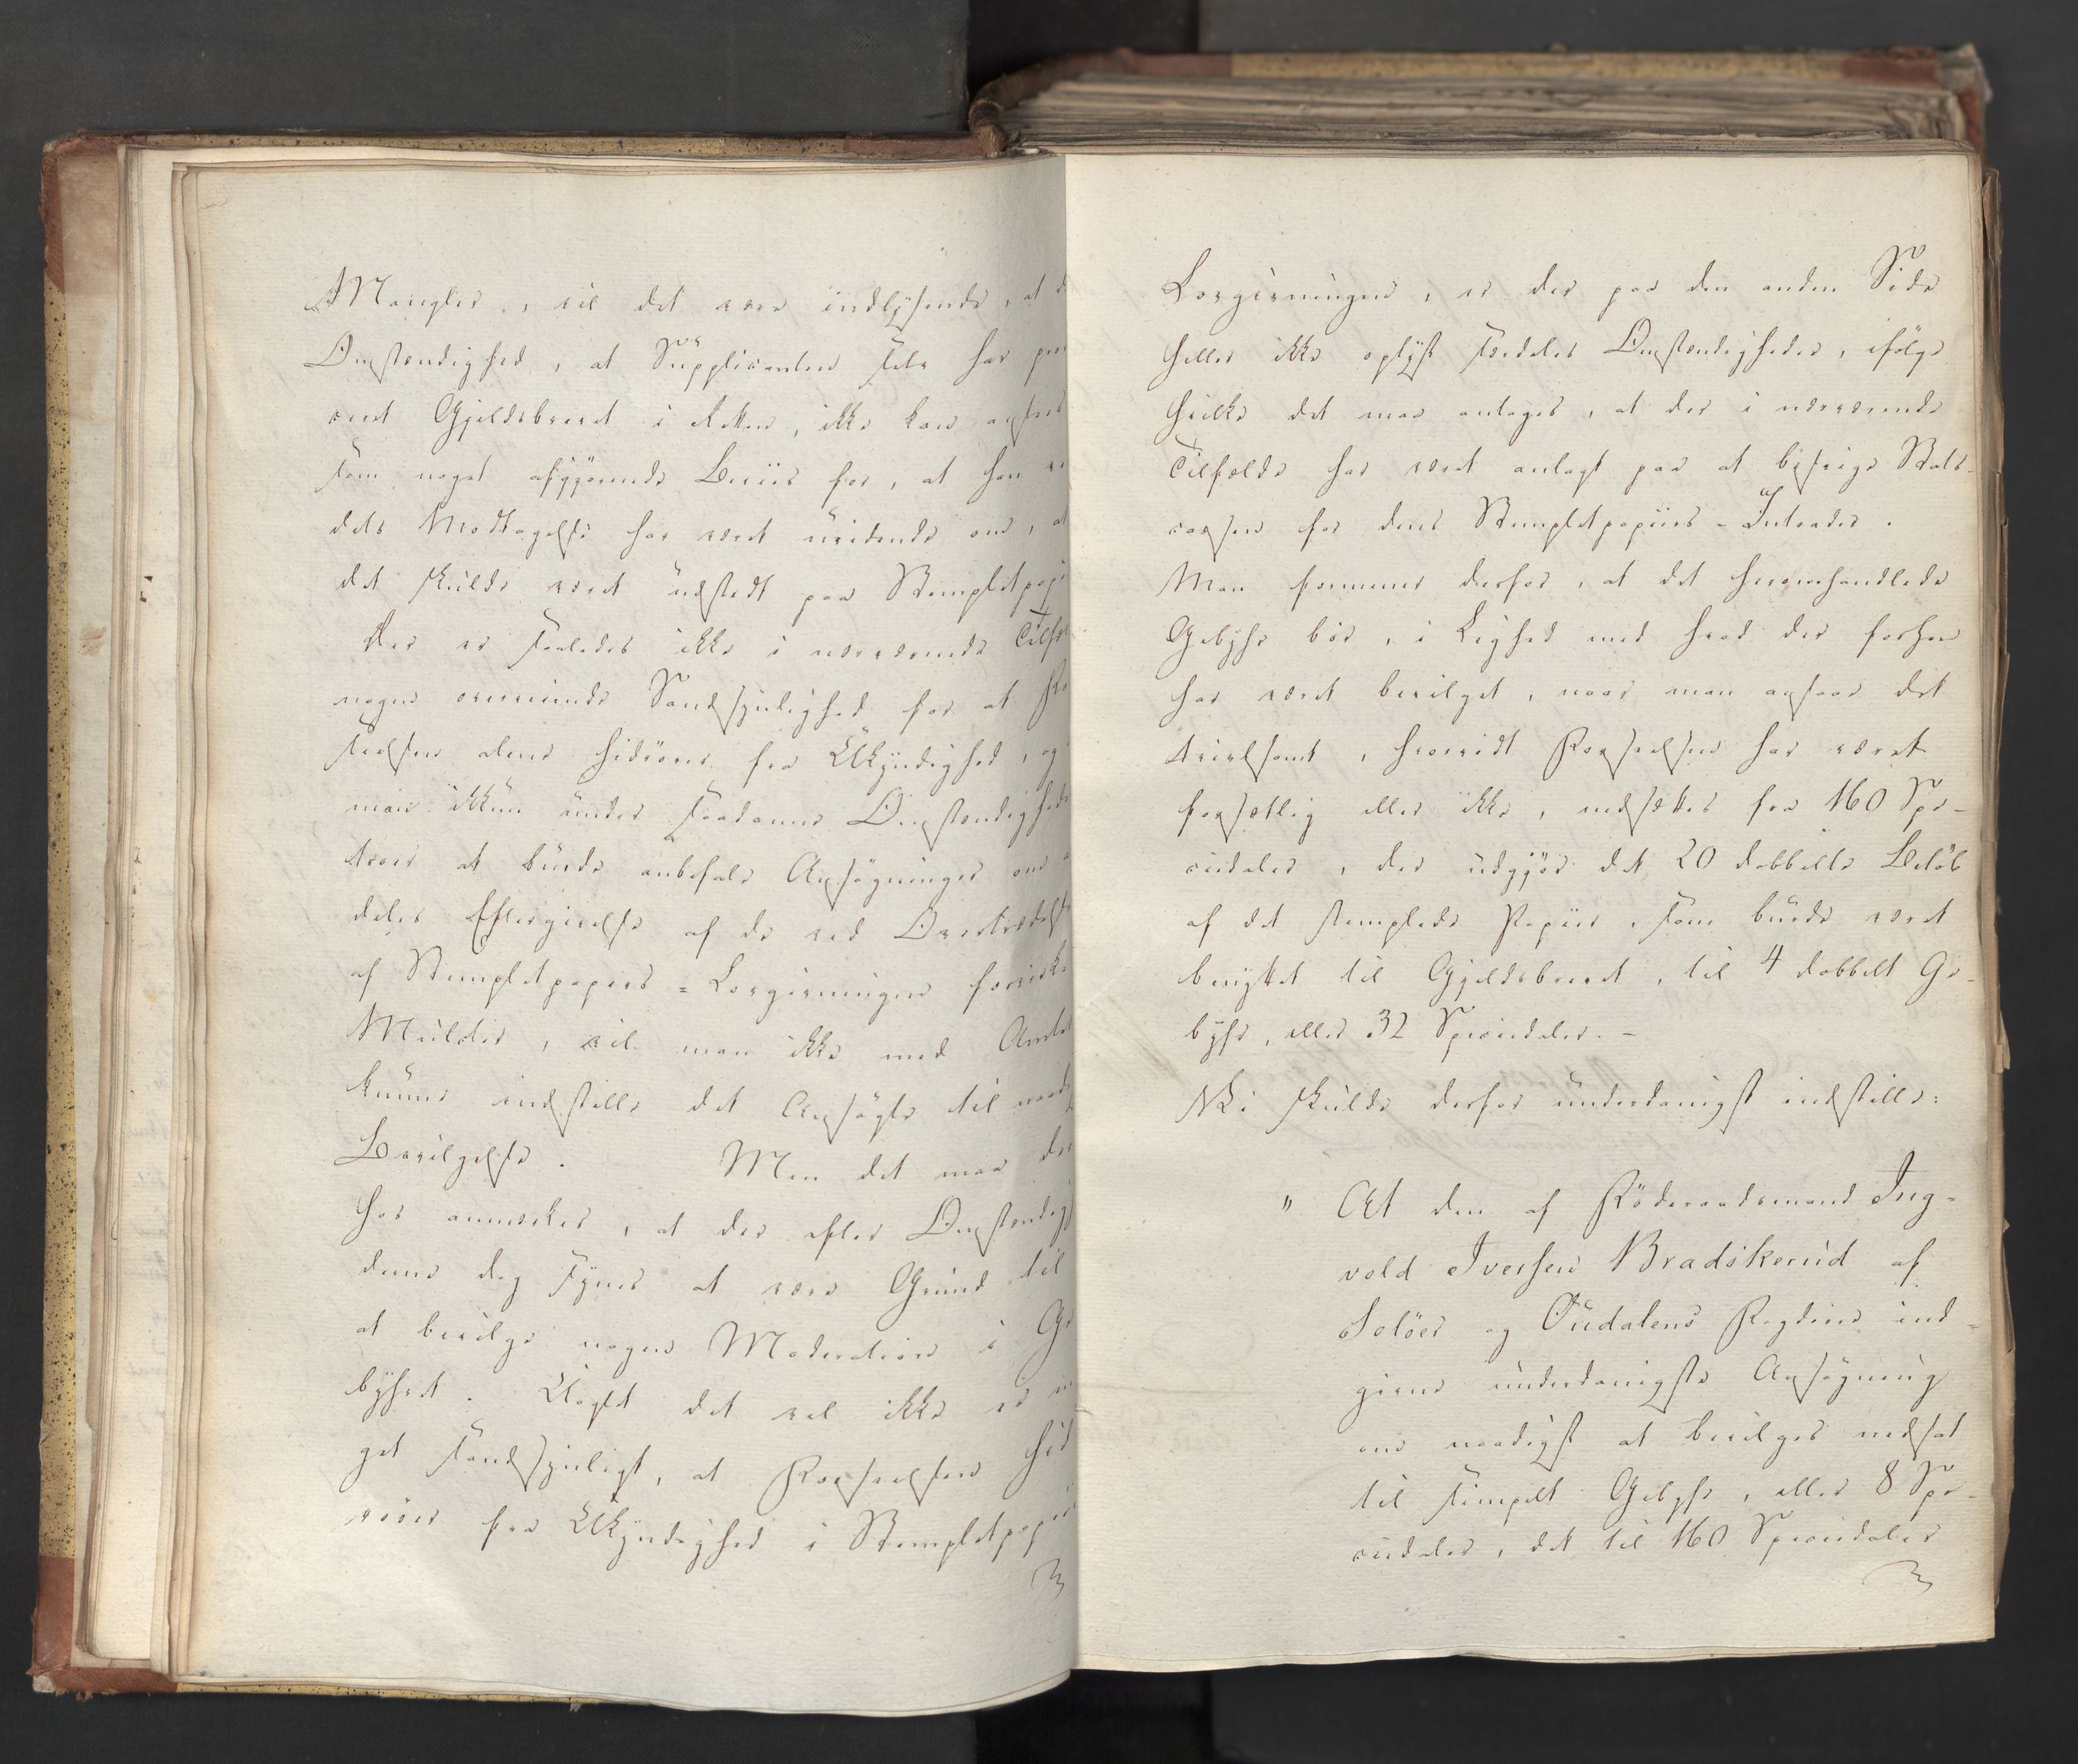 Mangler, vil det være indlysende, at d
Omstændighed, at Supplicanten selv har pro
ceret Gjeldsbrevet i Retten, ikke kan ansees
som noget afgjörende Beviis for, at han ve
dets Modtagelse har været uvidende om, at
det skulde været udstedt paa Stempletpapi
Der er saaledes ikke i nærværende Tilfæl
nogen overveiende Sandsynlighed for at Fo
seelsen alene hidrører fra Ukyndighed, og
man ikkun under saadanne Omstændighede
troer at burde anbefale Ansøgninger om
deles Eftergivelse af de ved Overtrædelse
af Stempletpapirs-Lovgivningen forvirke
Mulcter, vil man ikke med Amtet
kunne indstille det Ansøgte til naadi
Bevilgelse. Men det maa der
hos anmærkes, at der efter Omstændig
dene dog synes at være Grund til
at bevilge nogen Moderation i Ge
byhret. Uagtet det vel ikke er
get sandsynligt, at Forseelsen hid
rører fra Ukyndighed i Stempletpapi
Lovgivningen, er der paa den anden Side
heller ikke oplyst særdeles Omstændigheder, ifølge
hvilke det maa antages, at der i nærværende
Tilfælde har været anlagt paa at besvige Stats-
cassen for dens Stempletpapiirs-Intrader.
Man formener derfor, at det heromhandlede
Gebyhr bør, i Lighed med hvad der forhen
har været bevilget, naar man ansaae det
tvivlsomt, hvorvidt Forseelsen har været
forsætlig eller ikke, nedsættes fra 160 Spe-
ciedaler, der udgjør det 20 dobbelte Beløb
af det stemplede Papiir, som burde været
benyttet til Gjeldsbrevet, til 4 dobbelt Ge-
byhr, eller 32 Speciedaler. -
Vi skulde derfor underdanigst indstille:
" At den af Røderaadsmand Ing-
vold Iversen Bradikerud af
Soløer og Oudalens Fogderie ind-
givne underdanigste Ansøgning
om naadigst at bevilges nedsat
til simpelt Gebyhr, eller 8 Spe-
ciedaler, det til 160 Speciedaler